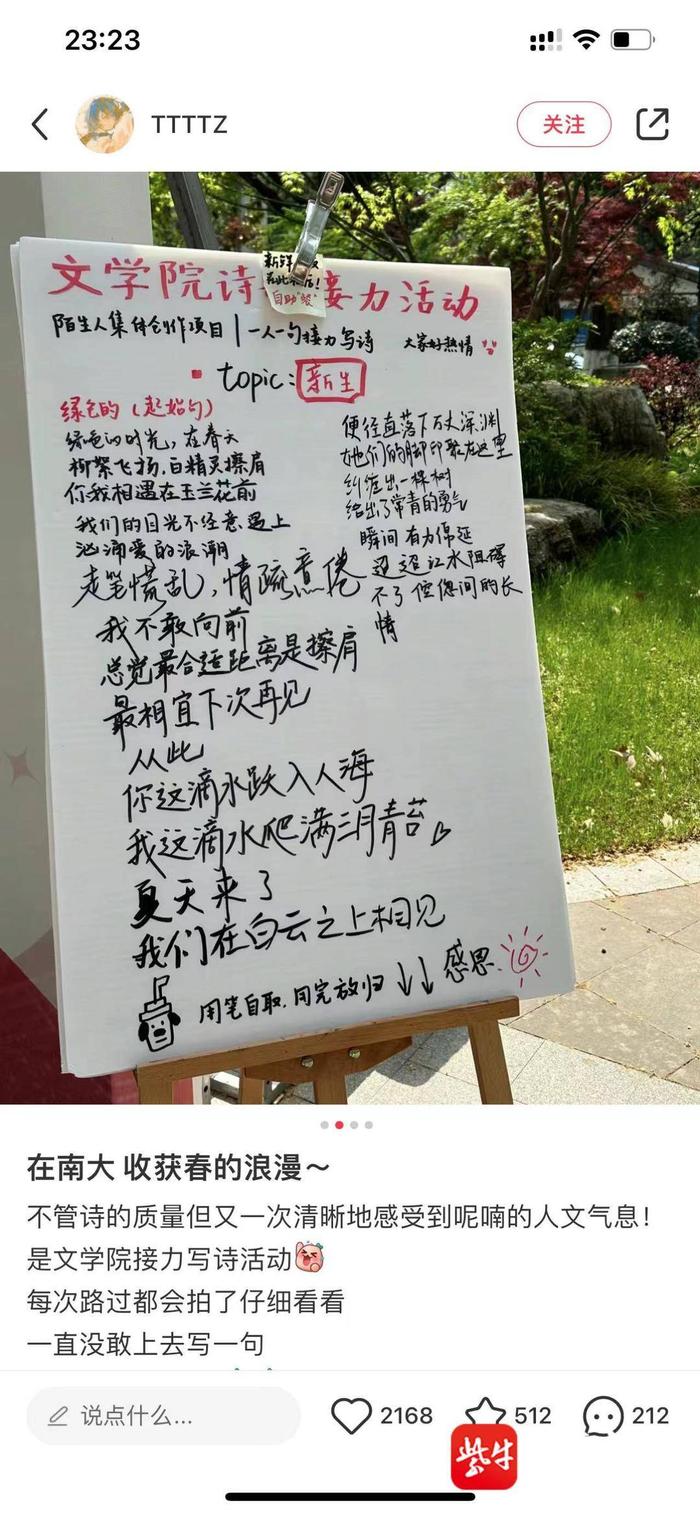 23:23
TTTTZ
关注
新鲜
在此
自助
文学院诗 接力活动
陌生人集体创作项目 | 一人一句接力写诗 大家好热情
topic: 新生
绿色的（起始句）
绿色的时光，在春天
柳絮飞扬，白精灵擦肩
你我相遇在玉兰花前
我们的目光不经意遇上
汹涌爱的浪潮
走笔慌乱，情疏意倦
我不敢向前
总觉最合适距离是擦肩
最相宜下次再见
从此
你这滴水跃入人海
我这滴水爬满三月青苔
夏天来了
我们在白云之上相见
便径直落下万丈深渊
她们的脚印散在这里
纠缠出一棵树
给出了常青的勇气
瞬间有力绵延
迢迢江水阻碍
不了 你间的长
情
用笔自取，用完放归 ↓↓ 感恩
在南大 收获春的浪漫～
不管诗的质量但又一次清晰地感受到呢喃的人文气息！
是文学院接力写诗活动
每次路过都会拍了仔细看看
一直没敢上去写一句
说点什么...
2168
512
212
紫牛